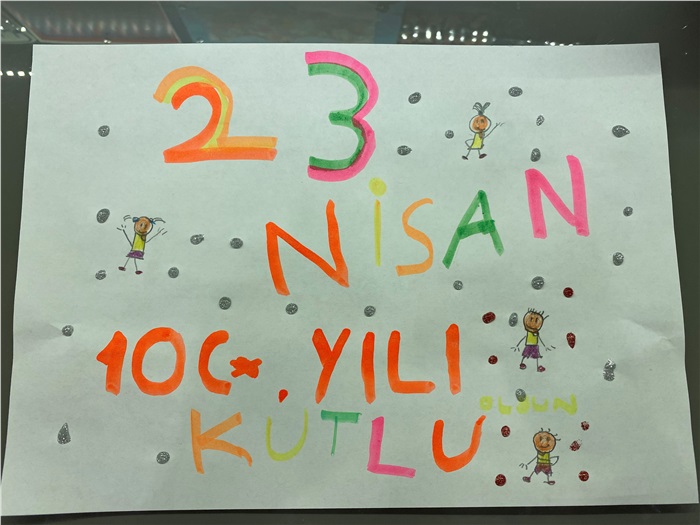 23
NİSAN
100. YILI
KUTLU
OLSUN